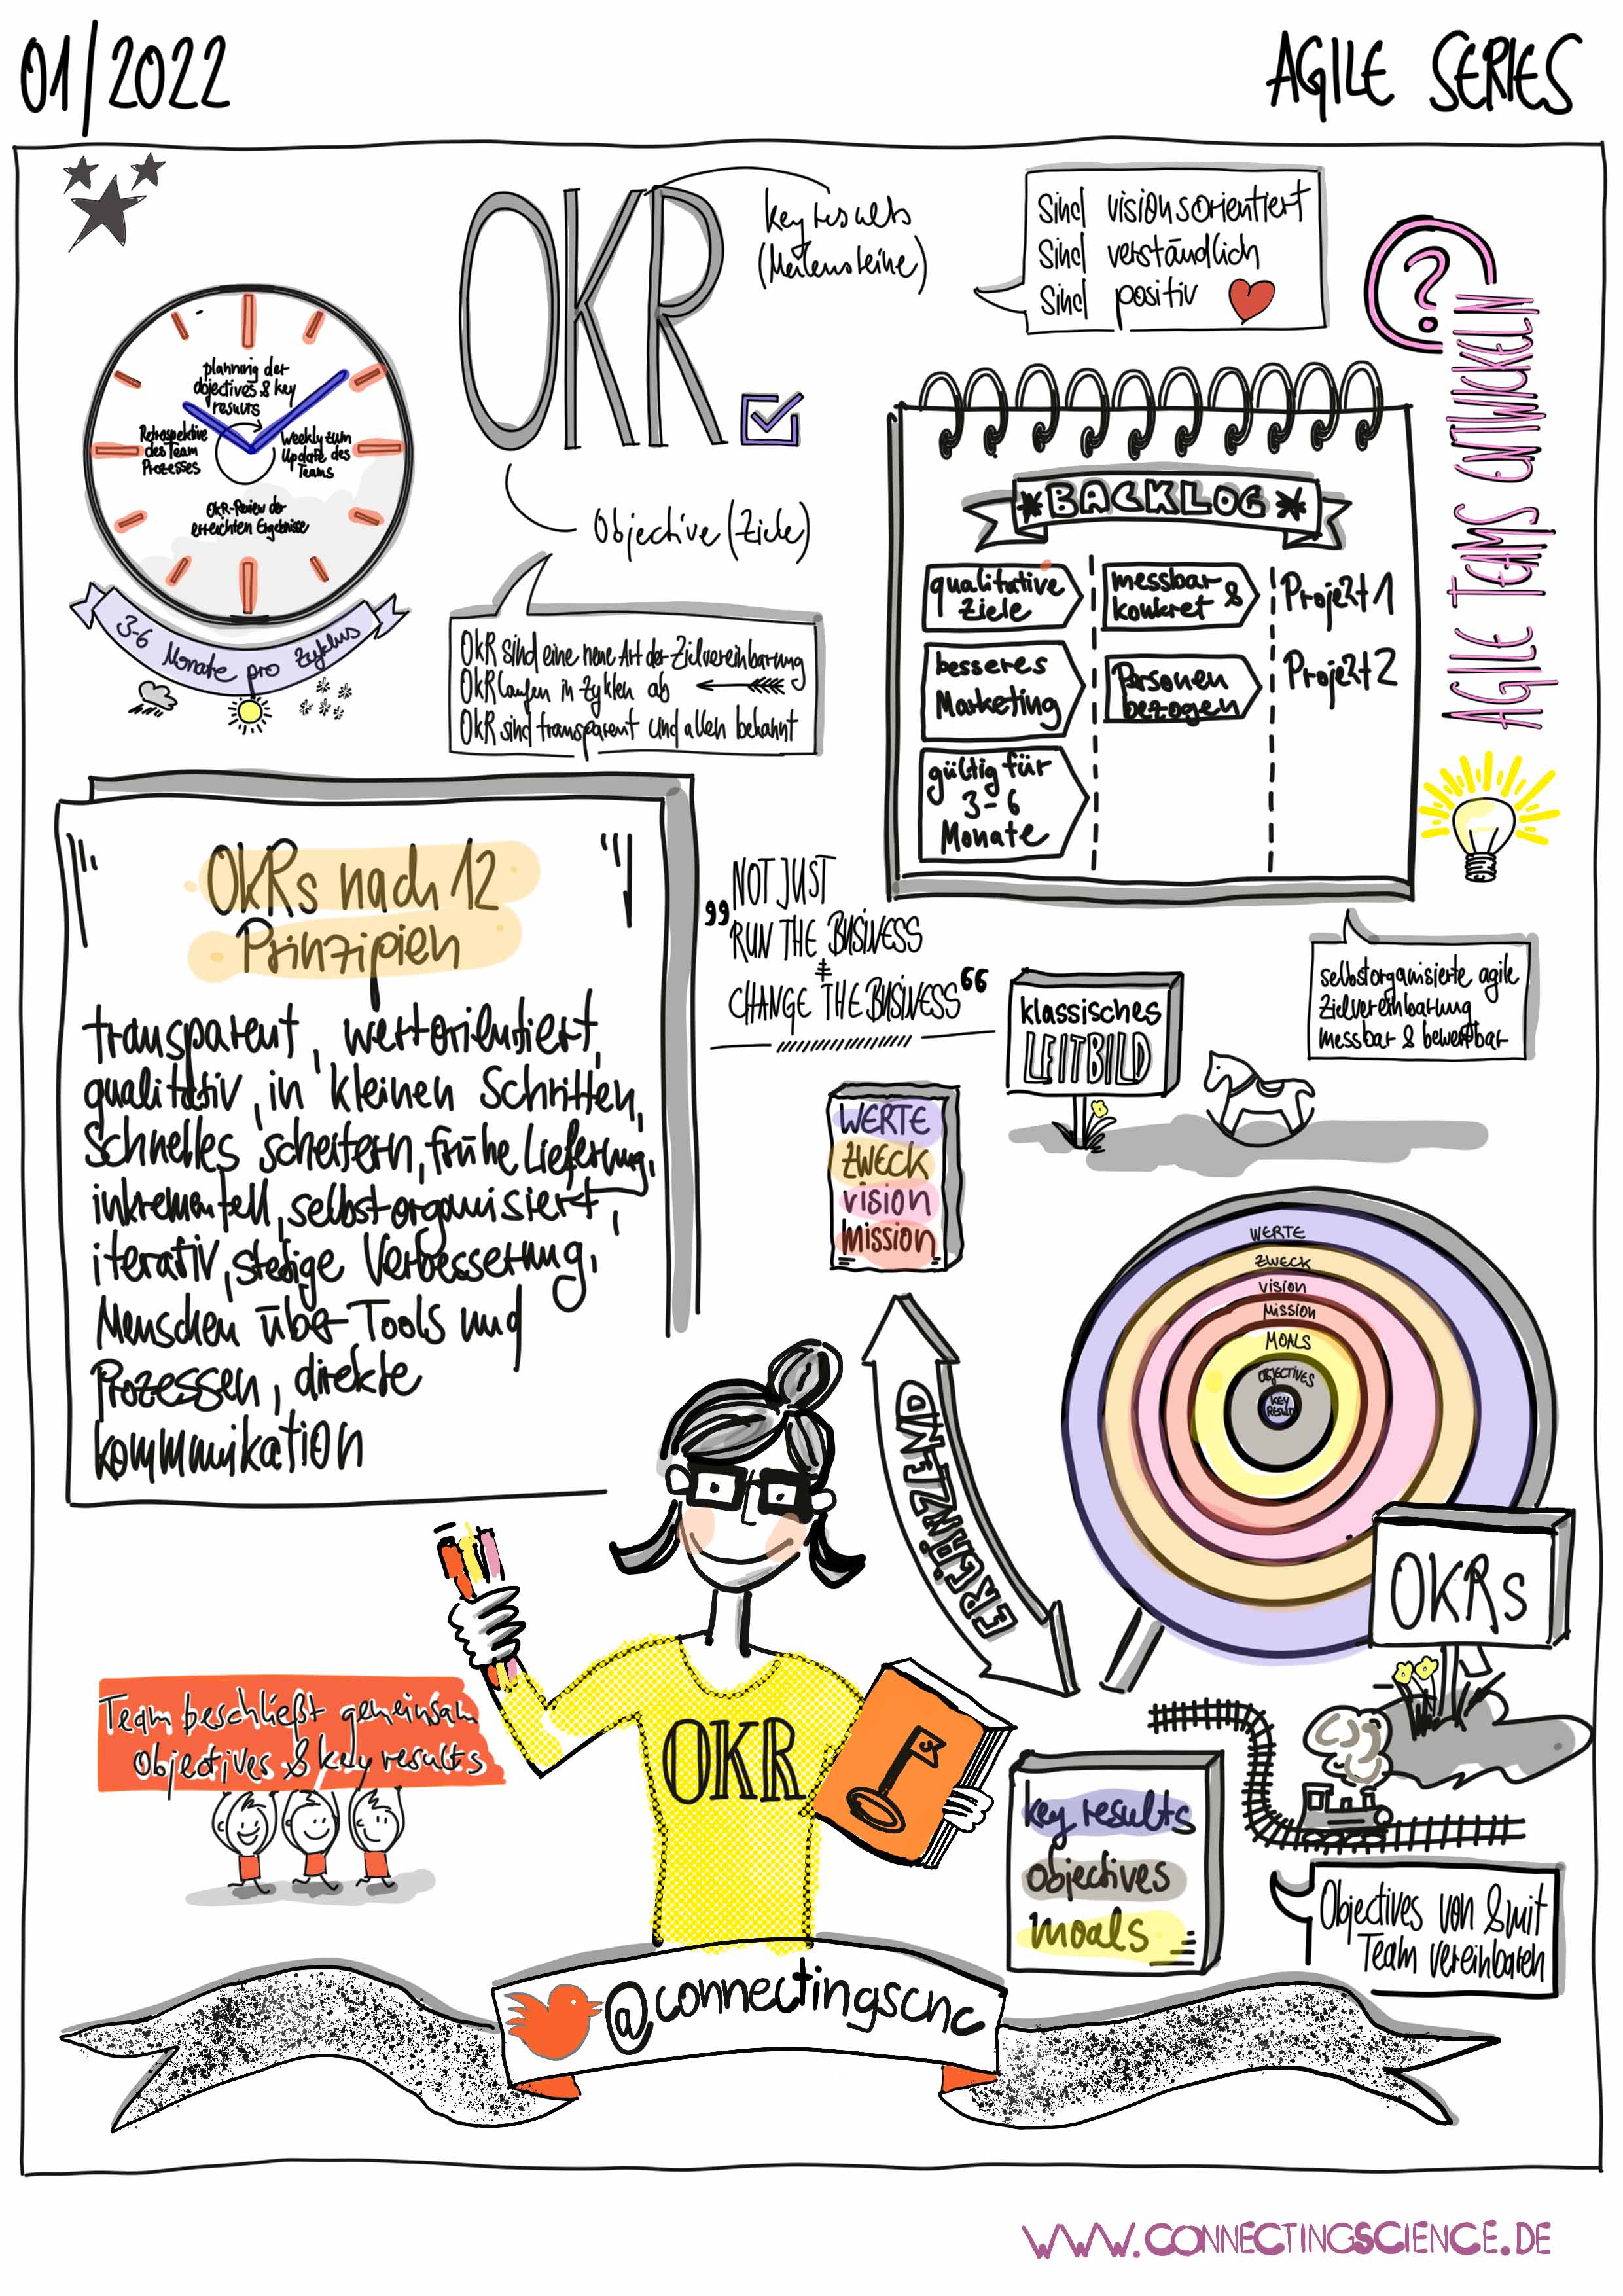 01/2022
AGILE SERIES
OKR
key results
(Meilensteine)
Objective (Ziele)
sind visionsorientiert
sind verständlich
sind positiv
?
AGILE TEAMS ENTWICKELN
planning der
objectives & key
results
Weekly zum
Update des
Teams
OKR-Review der
erreichten Ergebnisse
Retrospektive
des Team
Prozesses
3-6 Monate pro Zyklus
OKR sind eine neue Art der Zielvereinbarung
OKR laufen in Zyklen ab
OKR sind transparent und allen bekannt
*BACKLOG*
qualitative
Ziele
messbar
konkret &
Projekt 1
besseres
Marketing
Personen
bezogen
Projekt 2
gültig für
3-6
Monate
OKRs nach 12
Prinzipien
transparent, wertorientiert,
qualitativ, in kleinen Schritten,
Schnelles scheitern, frühe Lieferung,
inkrementell, selbstorganisiert,
iterativ, stetige Verbesserung,
Menschen über Tools und
Prozessen, direkte
kommunikation
„NOT JUST
RUN THE BUSINESS
≠
CHANGE THE BUSINESS“
selbstorganisierte agile
Zielvereinbarung
messbar & bewertbar
klassisches
LEITBILD
WERTE
ZWECK
vision
mission
ERGÄNZEND
WERTE
ZWECK
vision
Mission
MOALS
OBJECTIVES
KEY
RESULT
OKRs
Team beschließt gemeinsam
Objectives & key results
OKR
key results
objectives
moals
Objectives von & mit
Team vereinbaren
@connectingscnc
WWW.CONNECTINGSCIENCE.DE